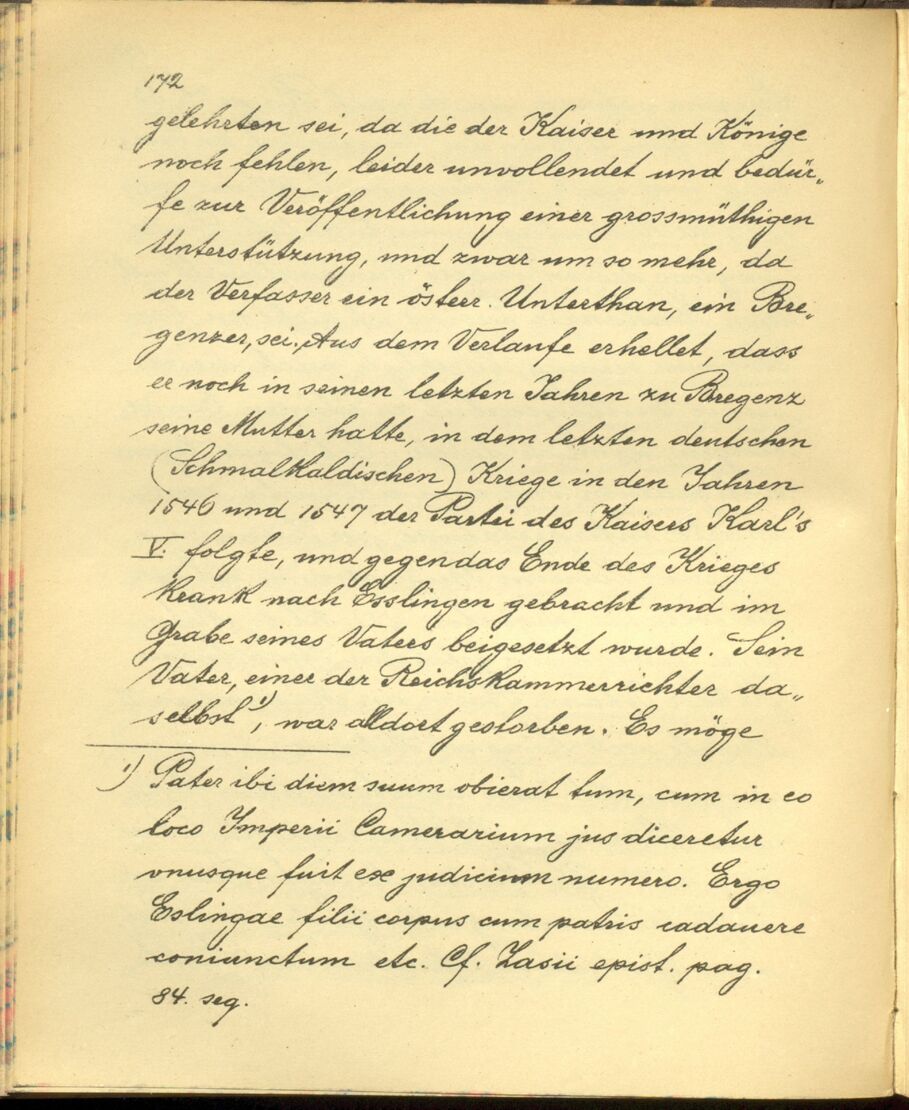 172
gelehrten sei, da die der Kaiser und Könige
noch fehlen, leider unvollendet und bedür„
fe zur Veröffentlichung einer grossmüthigen
Unterstützung, und zwar um so mehr, da
der Verfasser ein österr. Unterthan, ein Bre„
genzer, sei. Aus dem Verlaufe erhellet, dass
er noch in seinen letzten Jahren zu Bregenz
seine Mutter hatte, in dem letzten deutschen
(Schmalkaldischen) Kriege in den Jahren
1546 und 1547 der Partei des Kaisers Karl's
V. folgte, und gegen das Ende des Krieges
krank nach Esslingen gebracht und im
Grabe seines Vaters beigesetzt wurde. Sein
Vater, einer der Reichskammerrichter da„
selbst 1), war alldort gestorben. Es möge
1) Pater ibi diem suum obierat tum, cum in eo
loco Imperii Camerarium jus diceretur
vnusque fuit ex judicium numero. Ergo
Eslingae filii corpus cum patris cadauere
coniunctum etc. Cf. Zasii epist. pag.
84. seq.